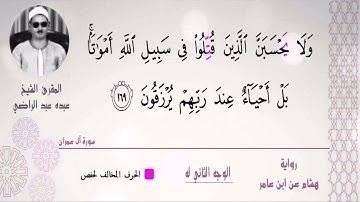 وَلَا يَحْسَبَنَّ الَّذِينَ قُتِّلُوا۟ فِى سَبِيلِ اللَّهِ أَمْوَٰتَۢاۚ
بَلْ أَحْيَآءٌ عِندَ رَبِّهِمْ يُرْزَقُونَ ١٦٩
المقرئ الشيخ
عبده عبد الراضي
سورة آل عمران
رواية
هشام عن ابن عامر
الوجه الثاني له
الحرف المخالف لحفص